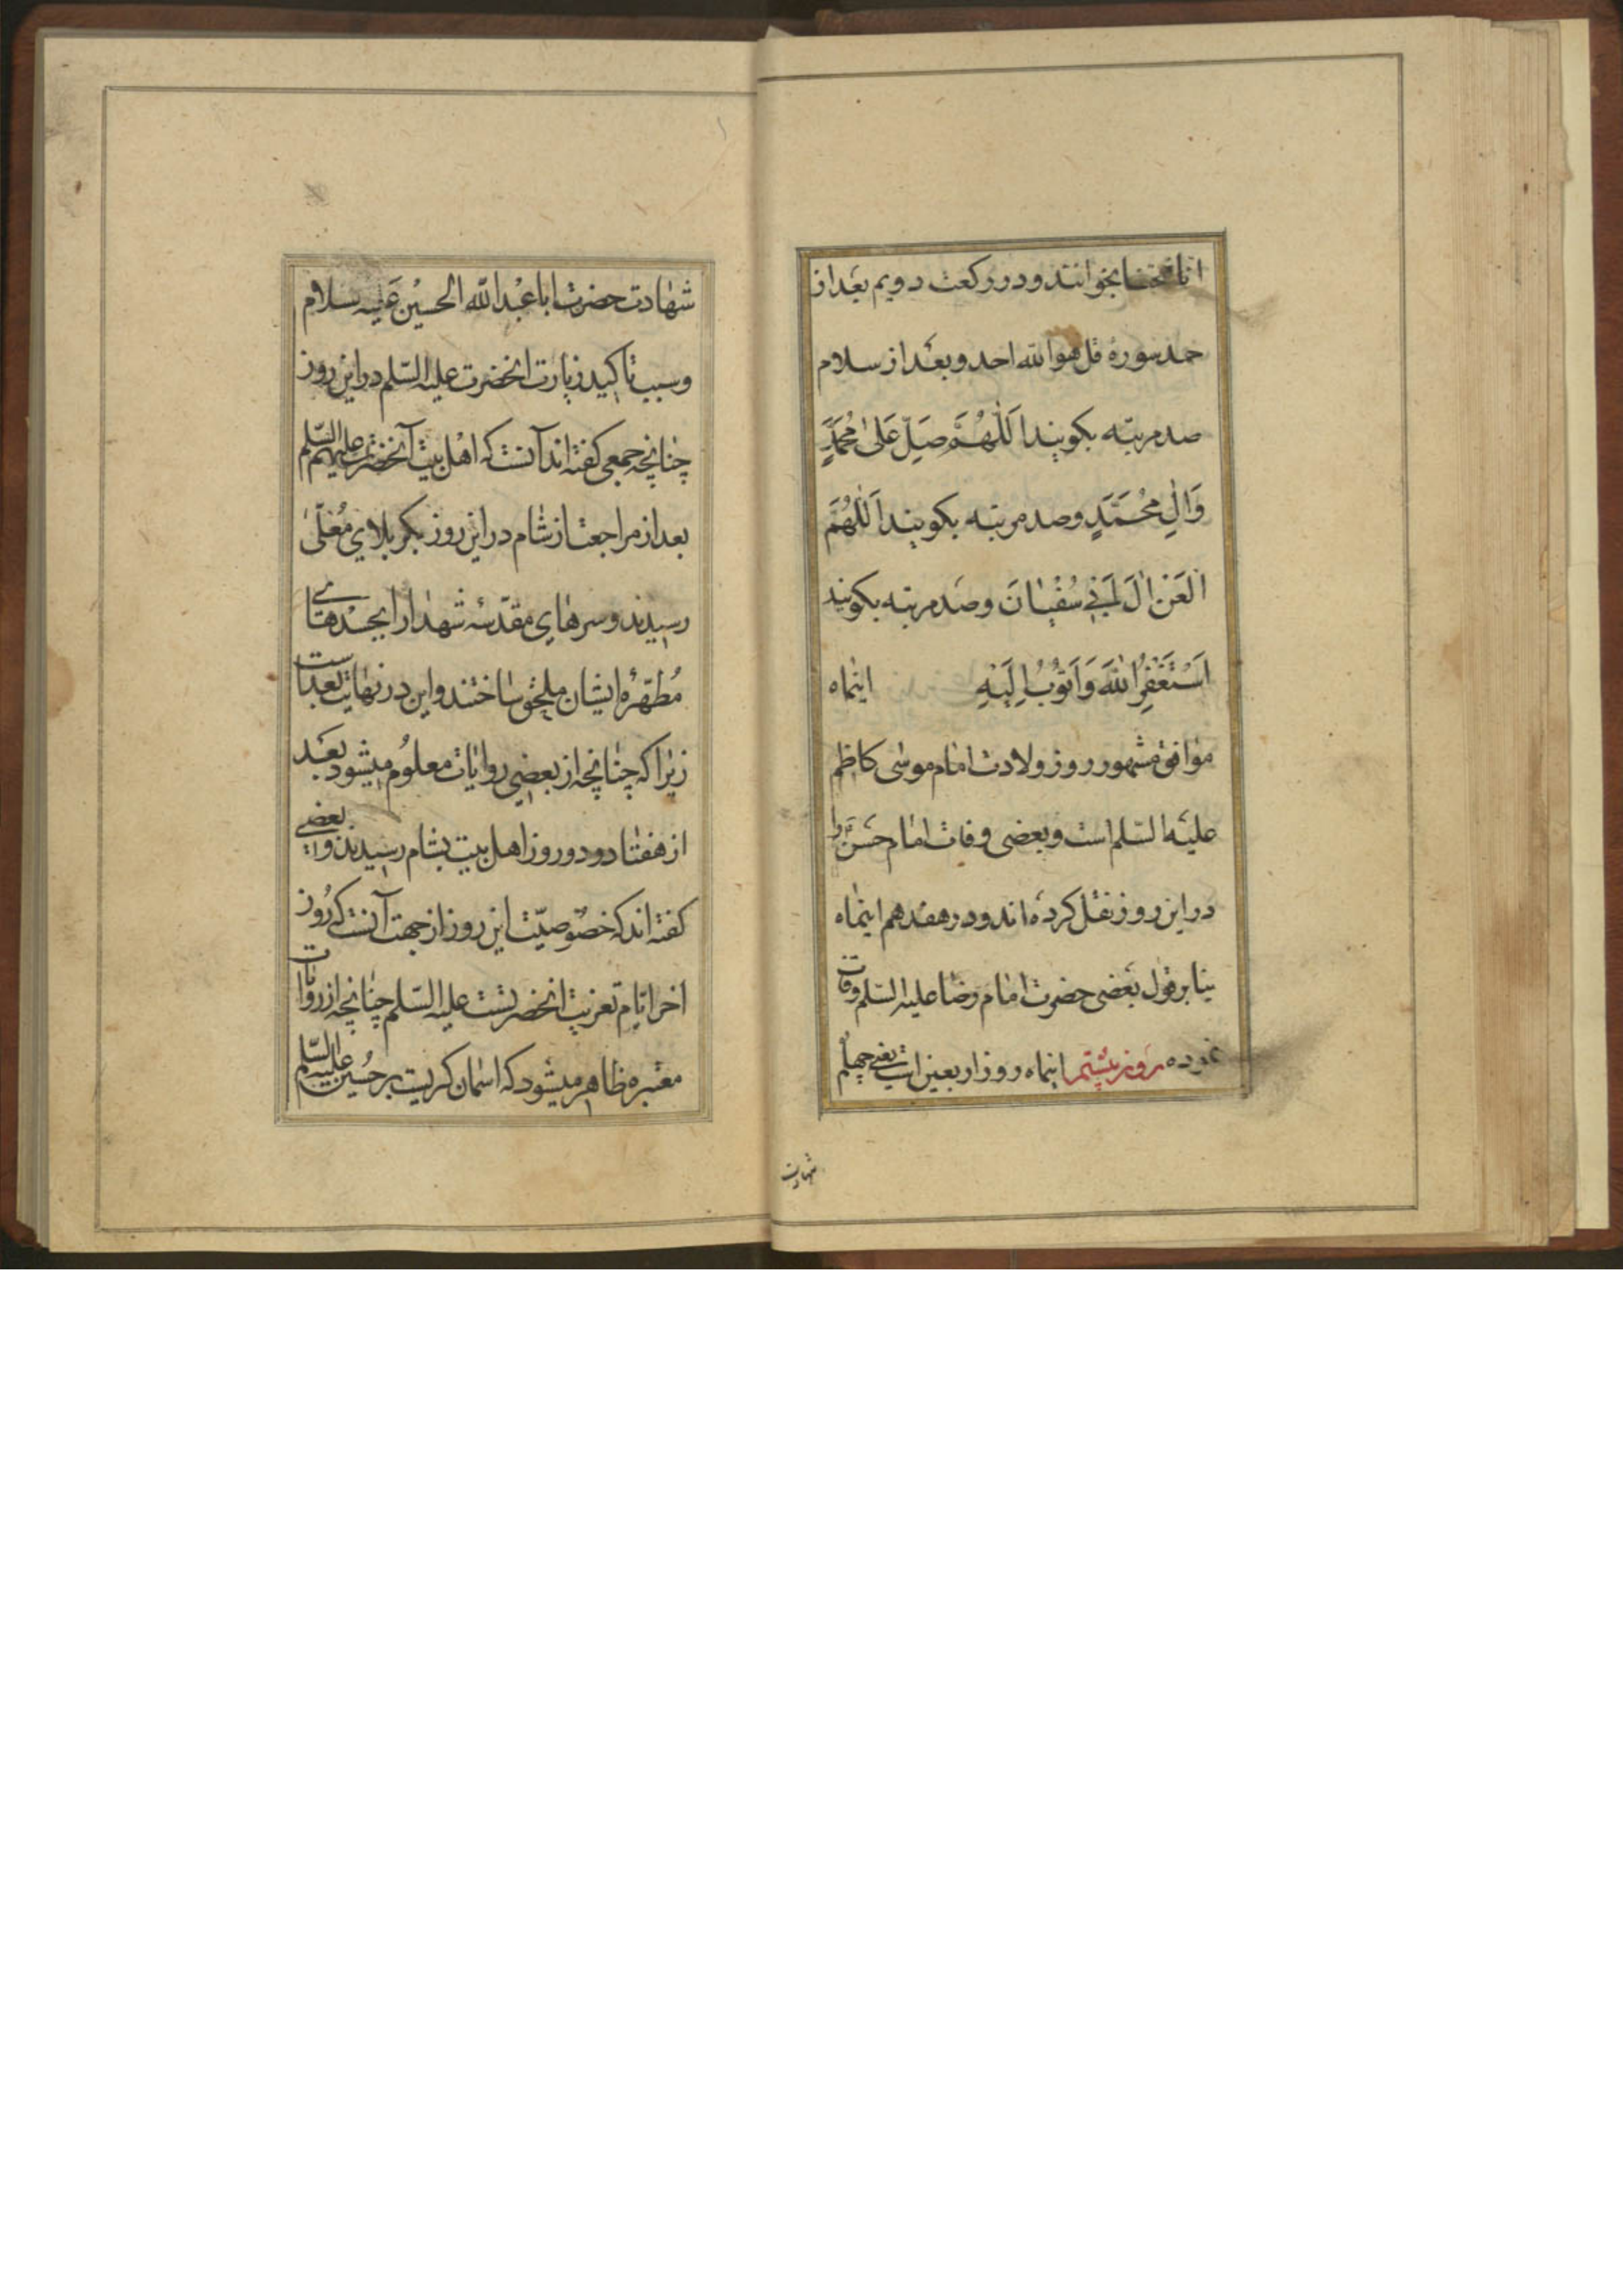 انا فتحنا بخوانند و در رکعت دویم بعد از
حمد سوره قل هو الله احد و بعد از سلام
صد مرتبه بکویند اَللّٰهُمَّ صَلِّ عَلیٰ مُحَمَّدٍ
وَ اٰلِ مُحَمَّدٍ و صد مرتبه بکویند اَللّٰهُمَّ
الْعَنْ اٰلَ اَبی سُفْیٰانَ و صد مرتبه بکویند
اَسْتَغْفِرُ اللّٰهَ وَ اَتُوبُ اِلَیْهِ اینماه
موافق مشهور روز ولادت امام موسی کاظم
علیه السّلم است و بعضی وفات امام حسن را
در این روز نقل کرده اند و در هفدهم اینماه
بنابر قول بعضی حضرت امام رضا علیه السّلم وفات
نموده روز بیستم اینماه روز اربعین است یعنی چهلم
شهادت
شهادت حضرت ابا عبد الله الحسین علیه سلام
و سبب تاکید زیارت انحضرت علیه السّلم در این روز
چنانچه جمعی کفته اند آنست که اهل بیت آنحضرت علیهم السّلم
بعد از مراجعت از شام در این روز بکربلای مُعَلّیٰ
رسیدند و سرهای مقدّسه شهدا را بجسدهای
مُطهّرهٔ ایشان ملحق ساختند و این در نهایت بعد است
زیرا که چنانچه از بعضی روایات معلوم میشود بعد
از هفتاد و دو روز اهل بیت بشام رسیدند و بعضی
کفته اند که خصوصیّت این روز از جهت آنست که روز
اخر ایّام تعزیت انحضرتست علیه السّلم چنانچه از روایات
معتبره ظاهر میشود که اسمان کریست بر حُسین علیه السّلم